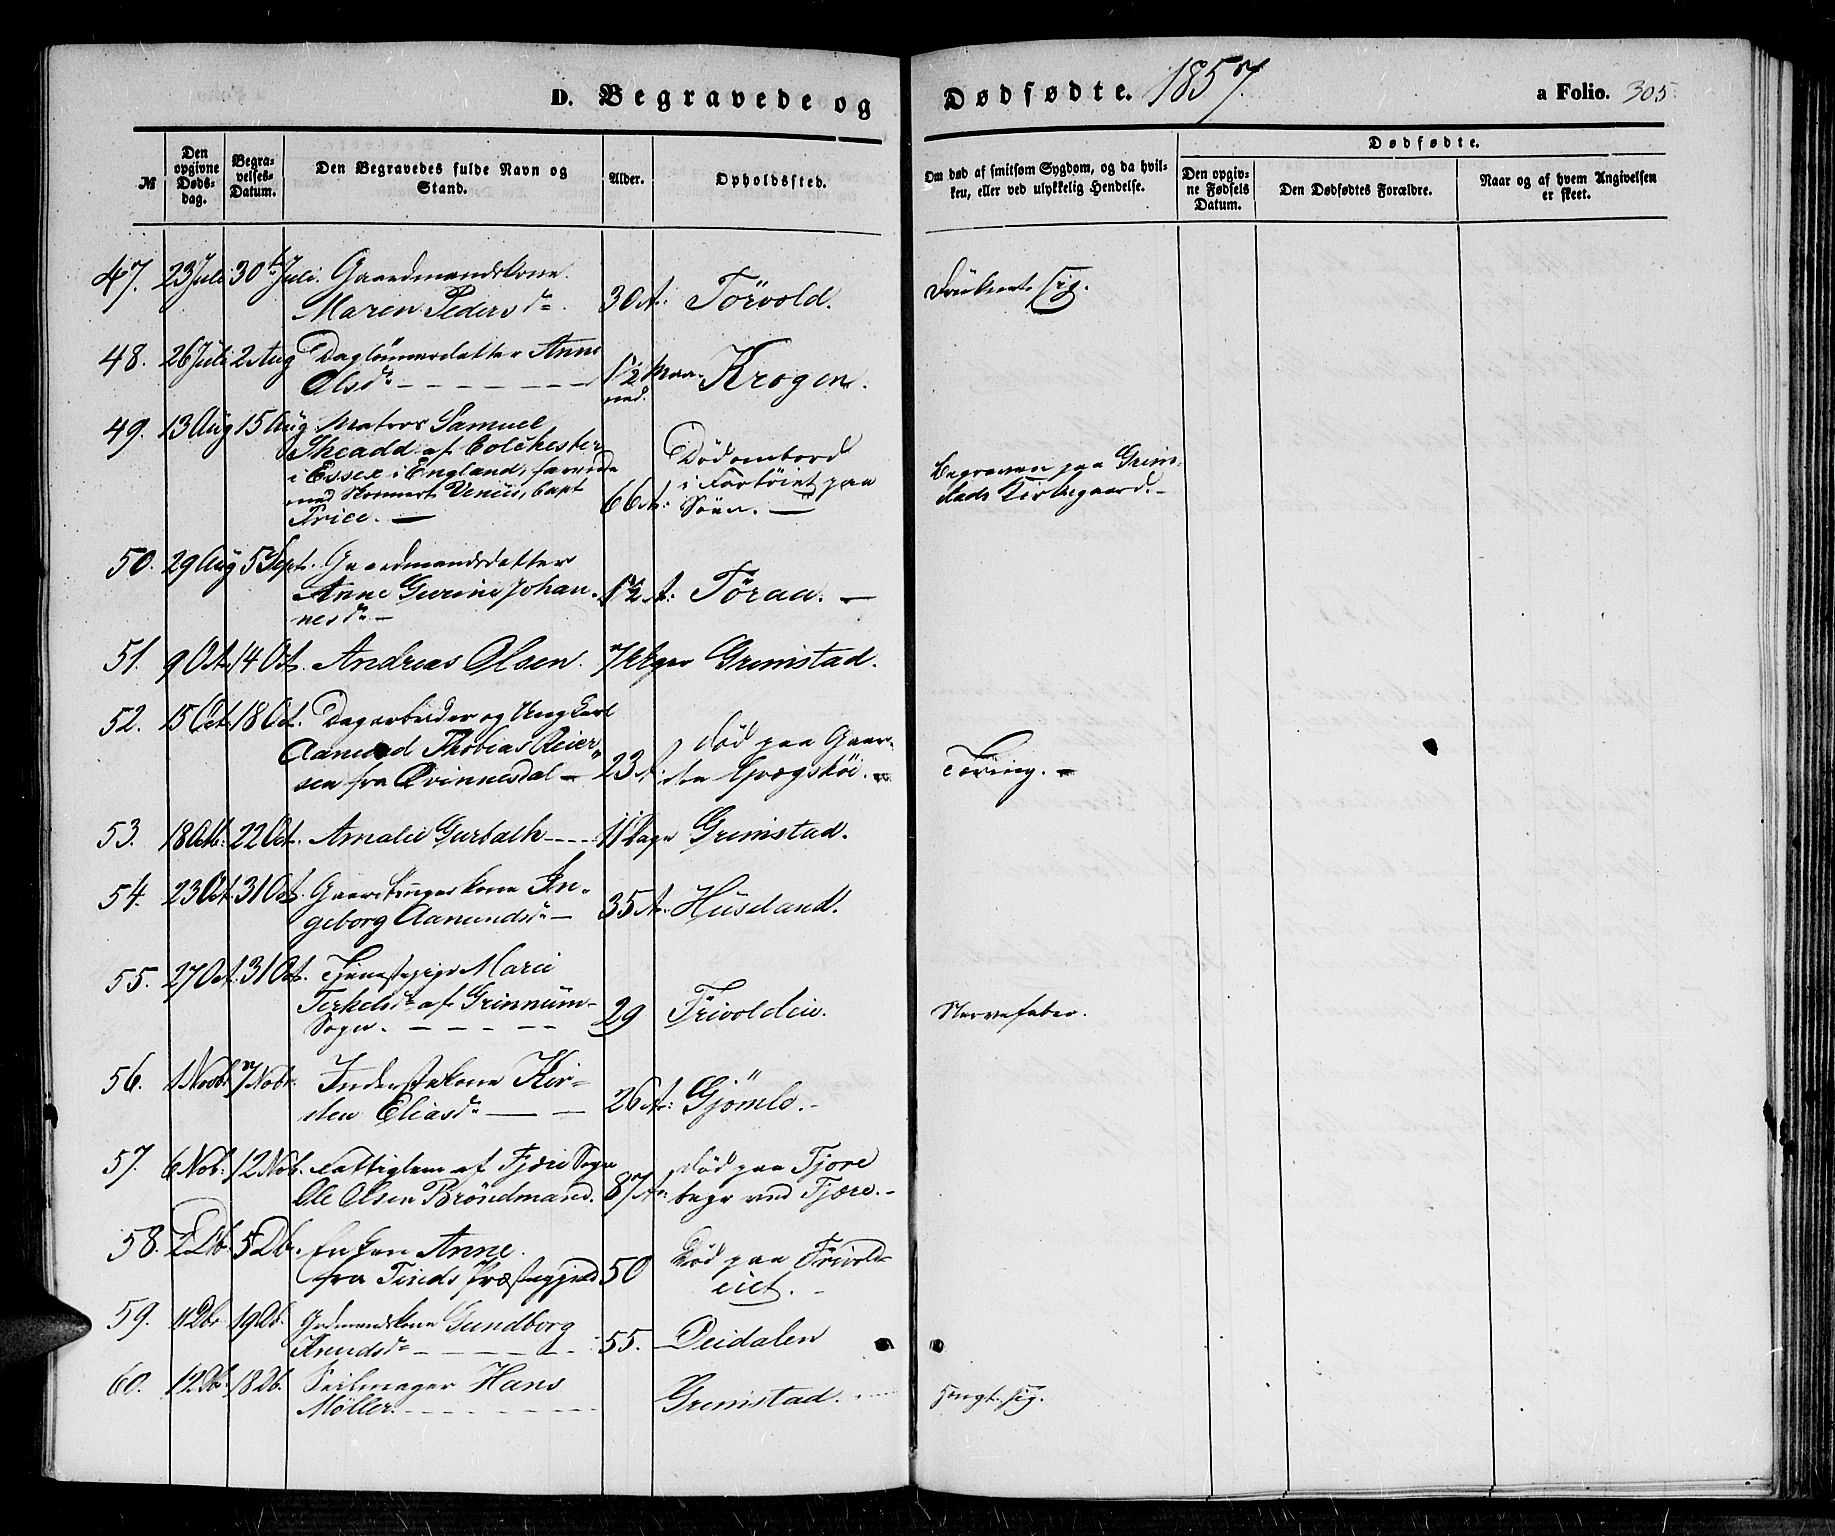 D. Begravede og Dødfødte. 1857.
a Folio. 305
№
Den opgivne Dødsdag.
Begravelses-Datum.
Den Begravedes fulde Navn og Stand.
Alder.
Opholdssted.
Om død af smitsom Sygdom, og da hvilken, eller ved ulykkelig Hendelse.
Dødfødte.
Den opgivne Fødsels Datum.
Den Dødfødtes Forældre.
Naar og af hvem Angivelsen er skeet.
47. 23 Juli 30te Juli. Gaardmandskone
Maren Pedersd. 30 A: Törvold. Druknet sig.
48. 26 Juli 2 Aug Daglönnerdatter Anne
Olsd. 1½ Maaned. Krogen.
49. 13 Aug 15 Aug Matros Samuel
Sheadd af Colchester
i Essex i England, farende
med Skonnert Venüs, Capt
Price. 66 A: Död ombord
i Fartöiet paa
Söen.
Begraven paa Grimstads Kirkegaard.
50. 29 Aug 5 Sept. Gaardmandsdatter
Anne Gurine Johannesd. 1½ A: Töraa.
51. 9 Oct. 14 Oct. Andreas Olsen. 7 Uger Grimstad.
52. 15 Oct. 18 Oct. Dagarbeider og Ungkarl
Aanund Thobias Reiersen
fra Qvinnesdal 23 A: död paa Gaarden
Tæring.
53. 18 Oct: 22 Oct. Amalie 11 Dage Grimstad.
54. 23 Oct. 31 Oct. Gaardbrugerkone Ingeborg
Aanundsd. 35 A: Hüseland.
55. 27 Oct. 31 Oct. Tjenestepige Marie
Terkelsd. af
Sogn. 29 Frivoldeie. Nervefeber.
56. 1 Novbr 7 Nobr. Inderstekone Kirsten
Eliasd. 26 A: Gjömlö.
57. 6 Nob: 12 Nob. Fattiglem af Fjære Sogn
Ole Olsen Bröndmand. 87 A: död paa Fjære
begr ved Fjære.
58. 2 Db. 5 Db. Enken Anne
fra Tinds Præstegjeld 50 Död paa Frivoldeiet.
59. 12 Dbr 19 Db. Jordmandskone Gundborg
Knudsd. 55. Deidalen
60. 12 Dbr 18 Db. Seilmager Hans
Møller. Grimstad. Hengt sig.